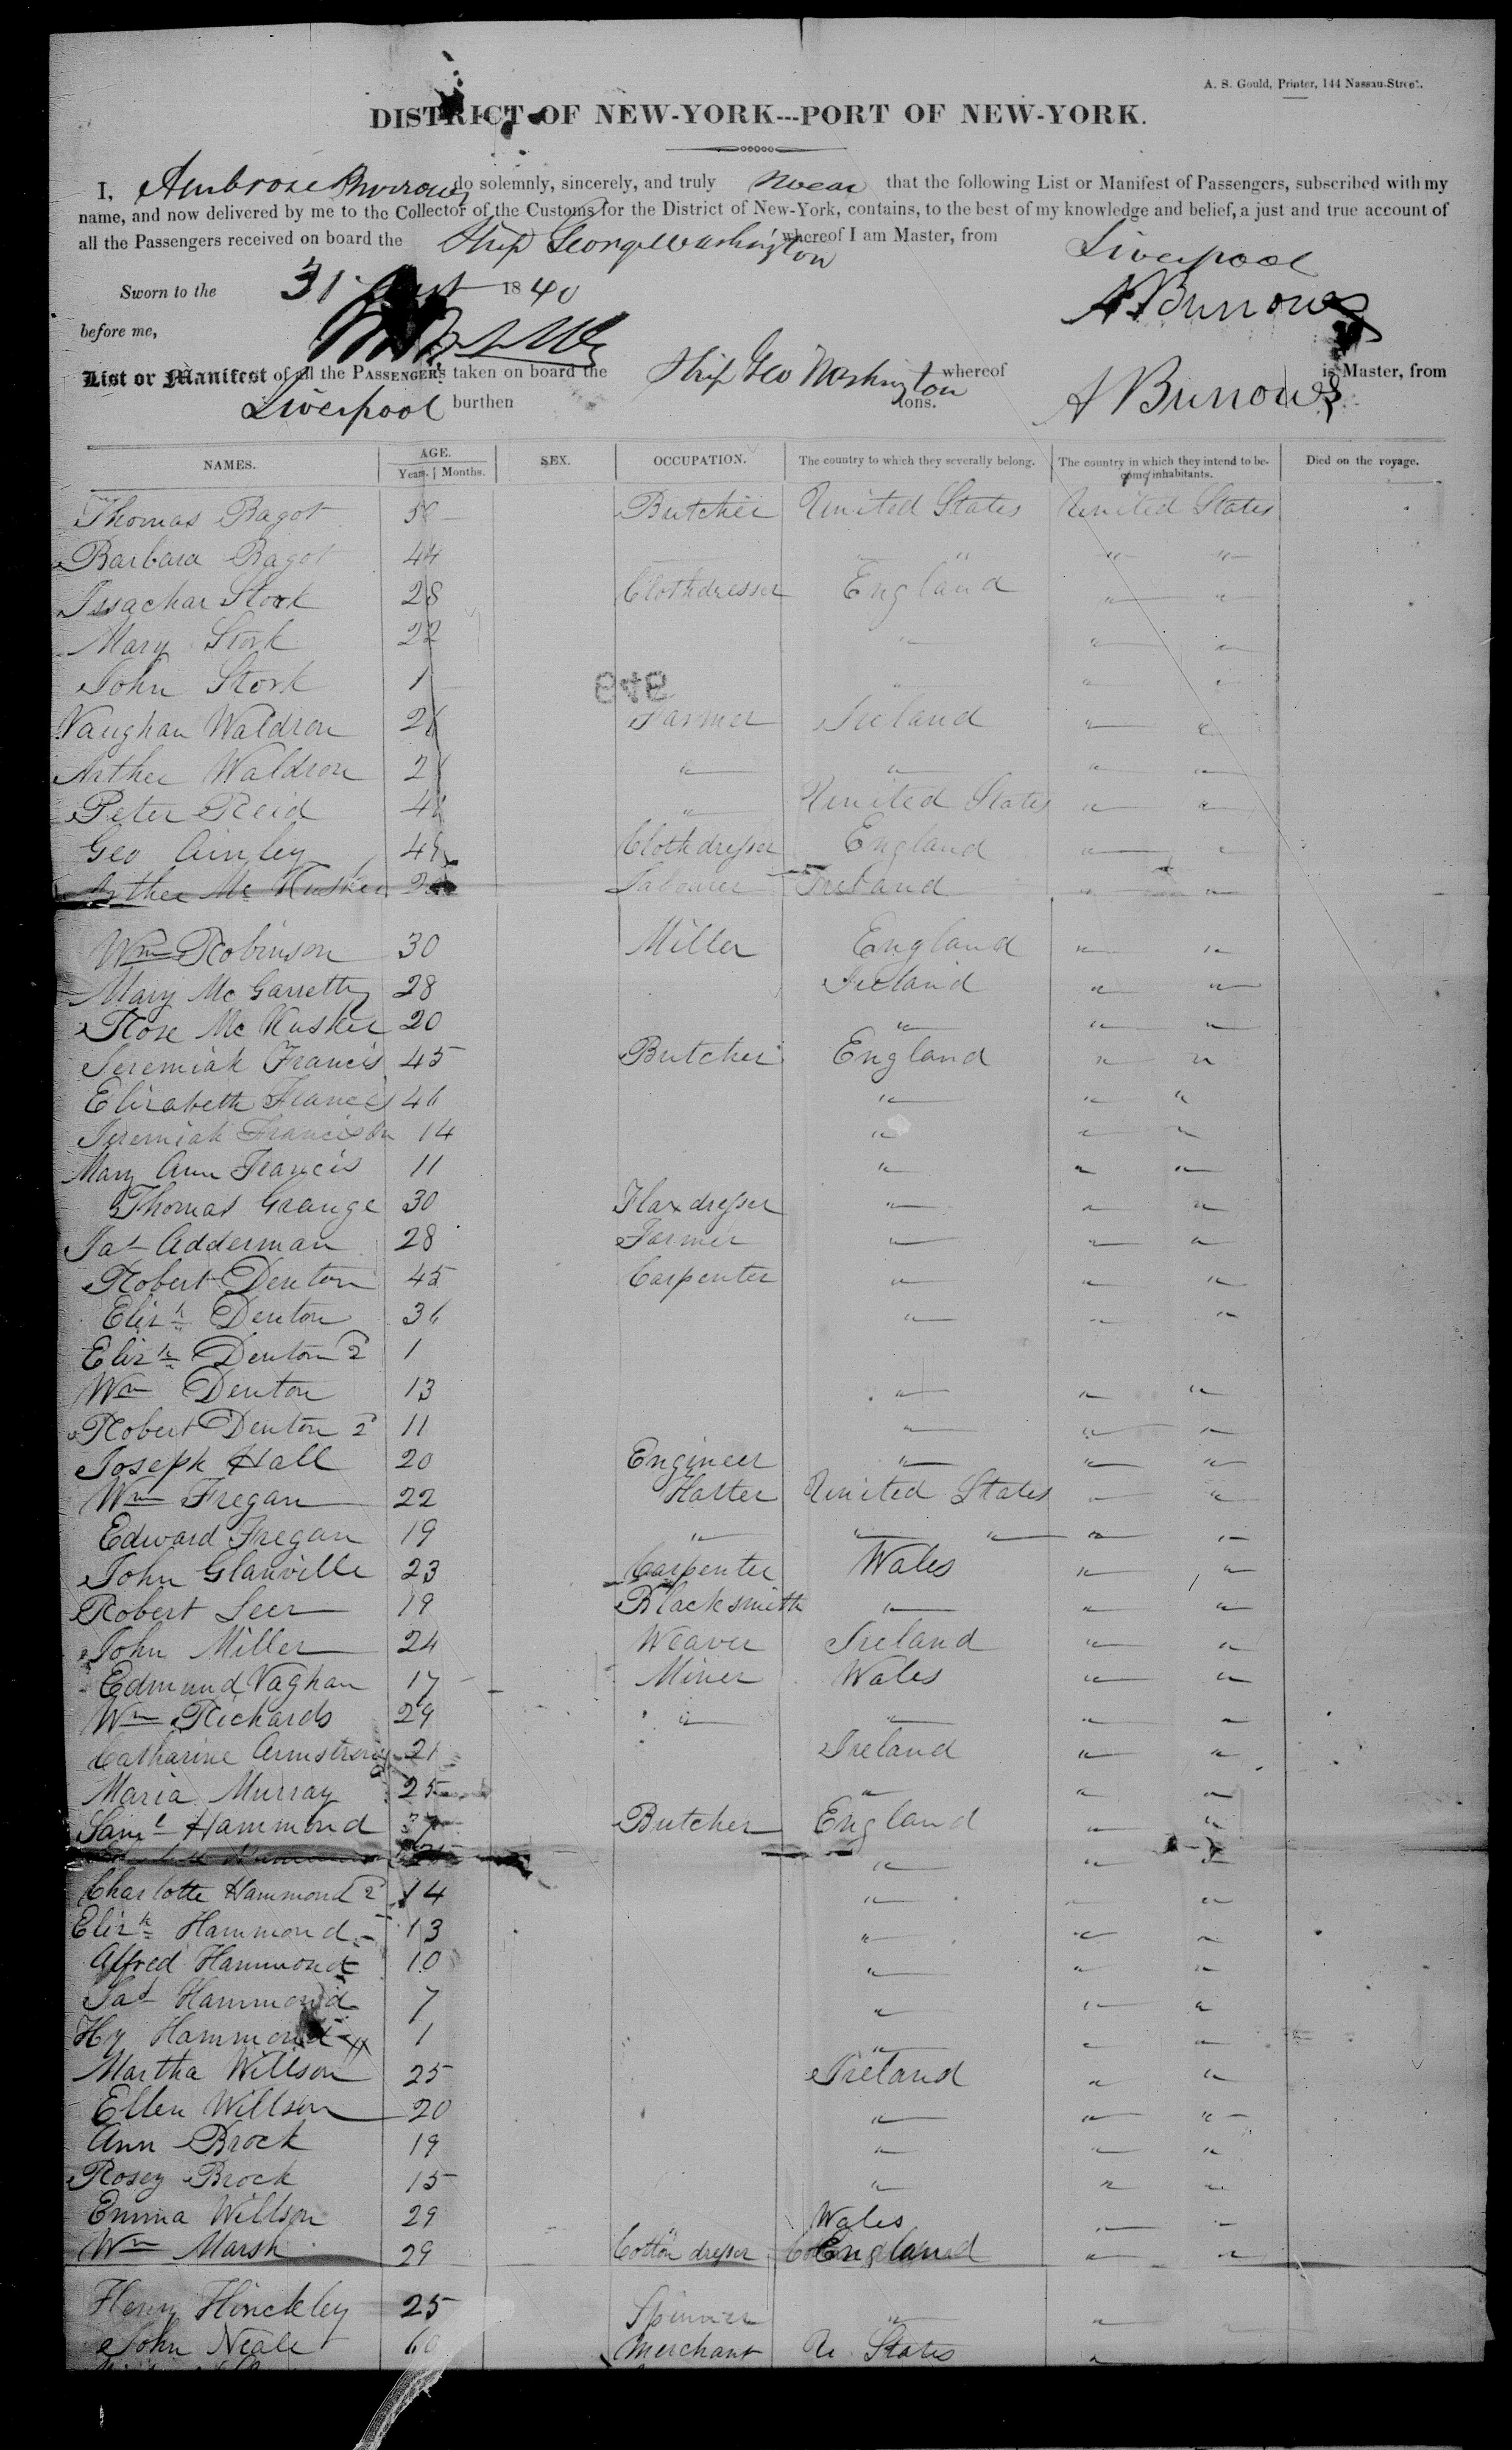 A. S. Gould, Printer, 144 Nassau-Street.
DISTRICT OF NEW-YORK---PORT OF NEW-YORK.
I, Ambrose Burrows do solemnly, sincerely, and truly swear that the following List or Manifest of Passengers, subscribed with my
name, and now delivered by me to the Collector of the Customs for the District of New-York, contains, to the best of my knowledge and belief, a just and true account of
all the Passengers received on board the Ship George Washington whereof I am Master, from Liverpool
Sworn to the 31 1840 A Burrows
before me,
List or Manifest of all the PASSENGERS taken on board the Ship Geo Washington whereof A Burrows is Master, from
Liverpool burthen tons.
NAMES. AGE. Years. Months. SEX. OCCUPATION. The country to which they severally belong. The country in which they intend to become inhabitants. Died on the voyage.
Thomas Bagot 50 Butcher United States United States
Barbara Bagot 44 " " " "
Issachar Stork 28 Clothdresser England " "
Mary Stork 22 " " "
John Stork 1 " " "
848
Vaughan Waldron Farmer Ireland " "
Arther Waldron " " " "
Peter Reid " United States " "
Geo Ainley Clothdresser England " "
Arther Mc Kusker Labourer Ireland " "
Wm Robinson 30 Miller England " "
Mary Mc Garretty 28 Ireland " "
Rose Mc Kusker 20 " " "
Jeremiah Francis 45 Butcher England " "
Elizabeth Francis 46 " " "
Jeremiah Francis Jn 14 " " "
Mary Ann Francis 11 " " "
Thomas Grange 30 Flaxdresser " " "
Jas Adderman 28 Farmer " " "
Robert Denton 45 Carpenter " " "
Elizh Denton 36 " " "
Elizh Denton 2 1
Wm Denton 13 " " "
Robert Denton 2 11 " " "
Joseph Hall 20 Engineer " " "
Wm Fregan 22 Hatter United States " "
Edward Fregan 19 " " " " "
John Glanville 23 Carpenter Wales " "
Robert Leer 19 Blacksmith " " "
John Miller 24 Weaver Ireland " "
Edmund Vaghan 17 Miner Wales " "
Wm Richards 29 " " " "
Catharine Armstrong 21 Ireland " "
Maria Murray 25 " " "
Saml Hammond 37 Butcher England " "
" " "
Charlotte Hammond 2 14 " " "
Elizh Hammond 13 " " "
Alfred Hammond 10 " " "
Jas Hammond 7 " " "
Hy Hammond 1 " " "
Martha Willson 25 Ireland " "
Ellen Willson 20 " " "
Ann Brock 19 " " "
Rosey Brock 15 " " "
Emma Willson 29 Wales " "
Wm Marsh 29 Cotton dresser England " "
Henry Hinckley 25 Spinner " "
John Neale 60 Merchant U. States "